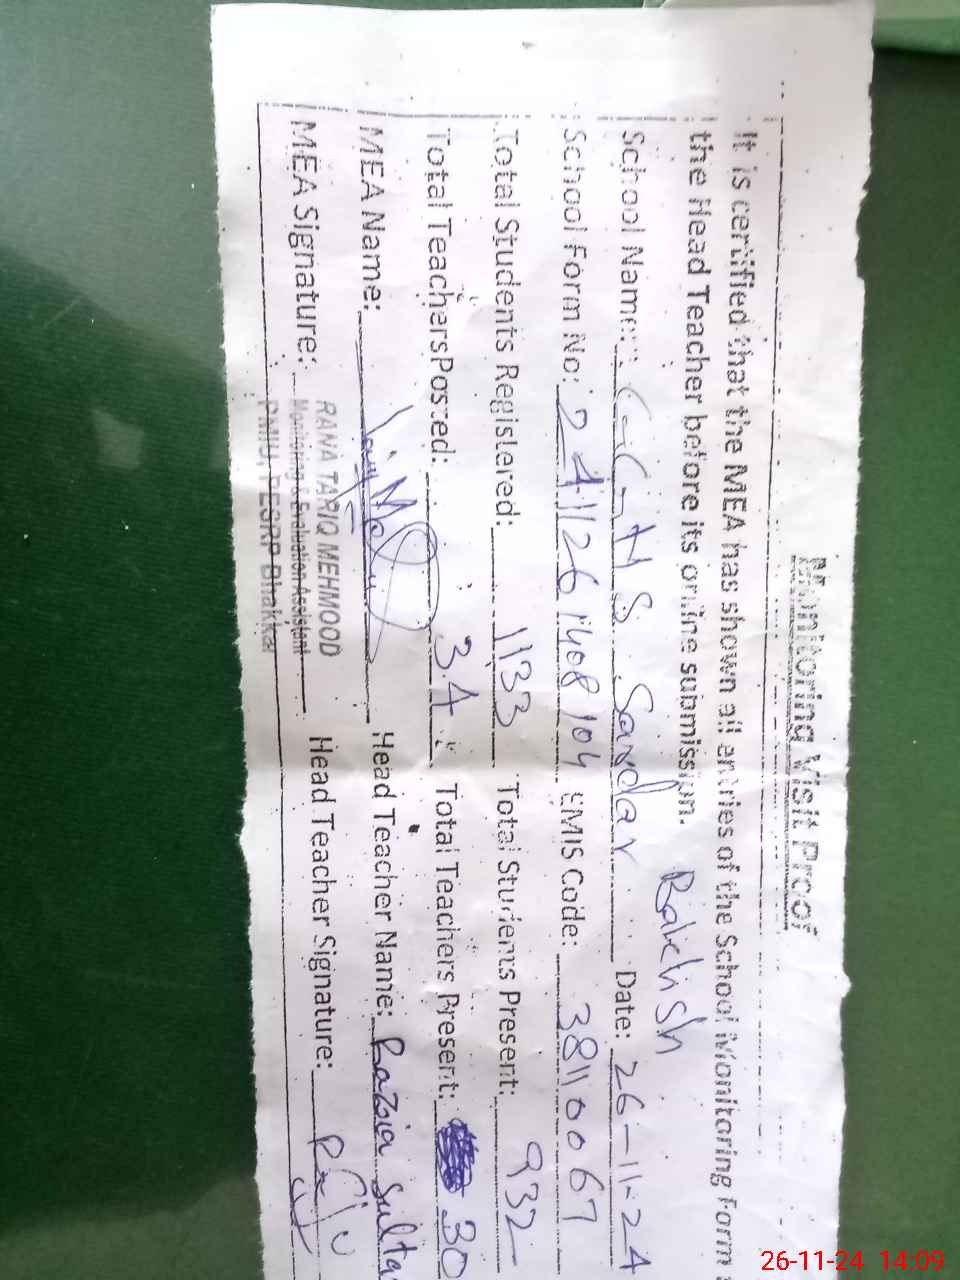 Monitoring Visit Proof
It is certified that the MEA has shown all entries of the School Monitoring Form
the Head Teacher before its online submission.
School Name: G.G.H.S Sardar Bakhsh Date: 26-11-24
School Form No: 241126 1408104 EMIS Code: 38110067
Total Students Registered: 1133 Total Students Present: 932
Total Teachers Posted: 34 Total Teachers Present: 30
MEA Name: Head Teacher Name: Razia Sulta
MEA Signature: Head Teacher Signature:
RANA TARIQ MEHMOOD
Monitoring & Evaluation Assistant
PMIU, PESRP Bhakkar
26-11-24 14:09